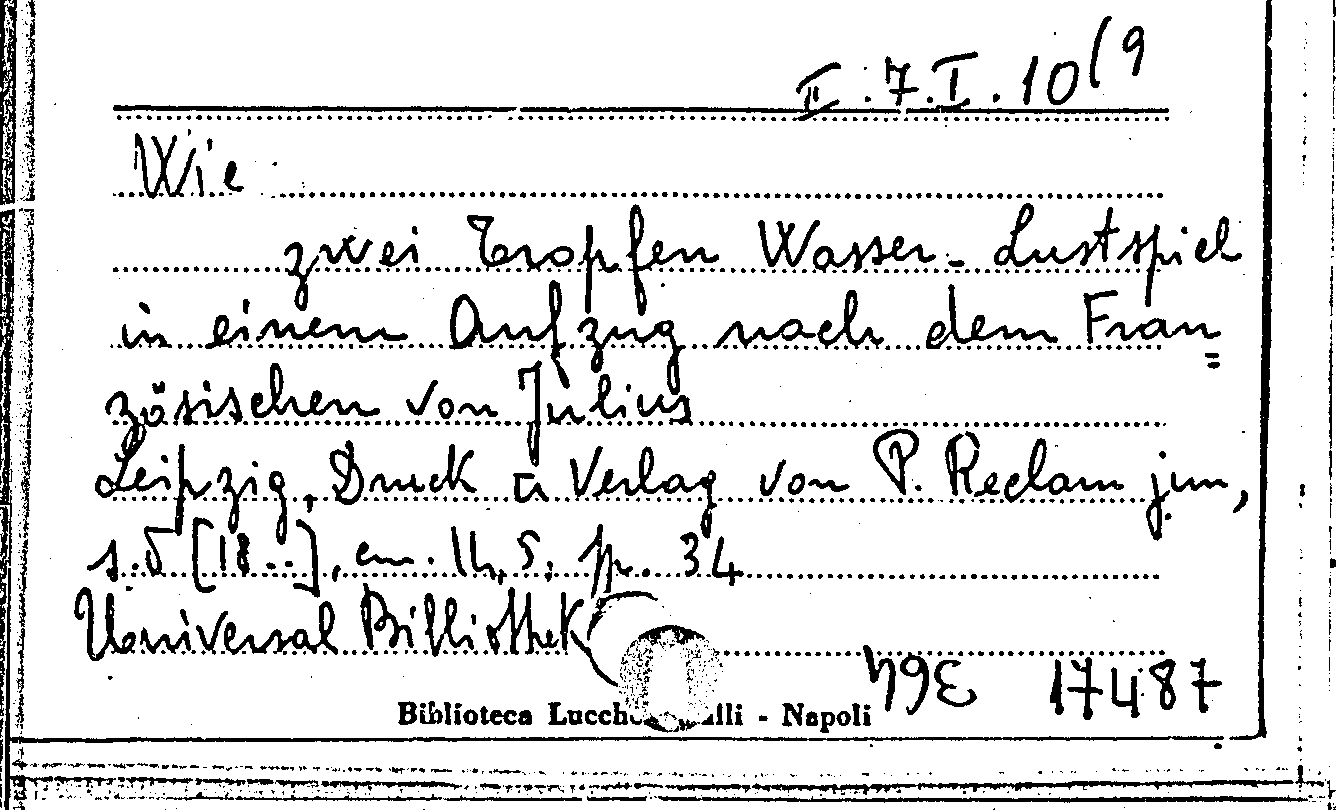 II.7.I.10(9
Wie
zwei Tropfen Wasser - Lustspiel
in einem Aufzug nach dem Fran=
zösischen von Julius
Leipzig, Druck u Verlag von P. Reclam jun,
s.d [18..], cm. 14,5, pp. 34
Universal Bibliothek
17487
Biblioteca Lucch alli - Napoli